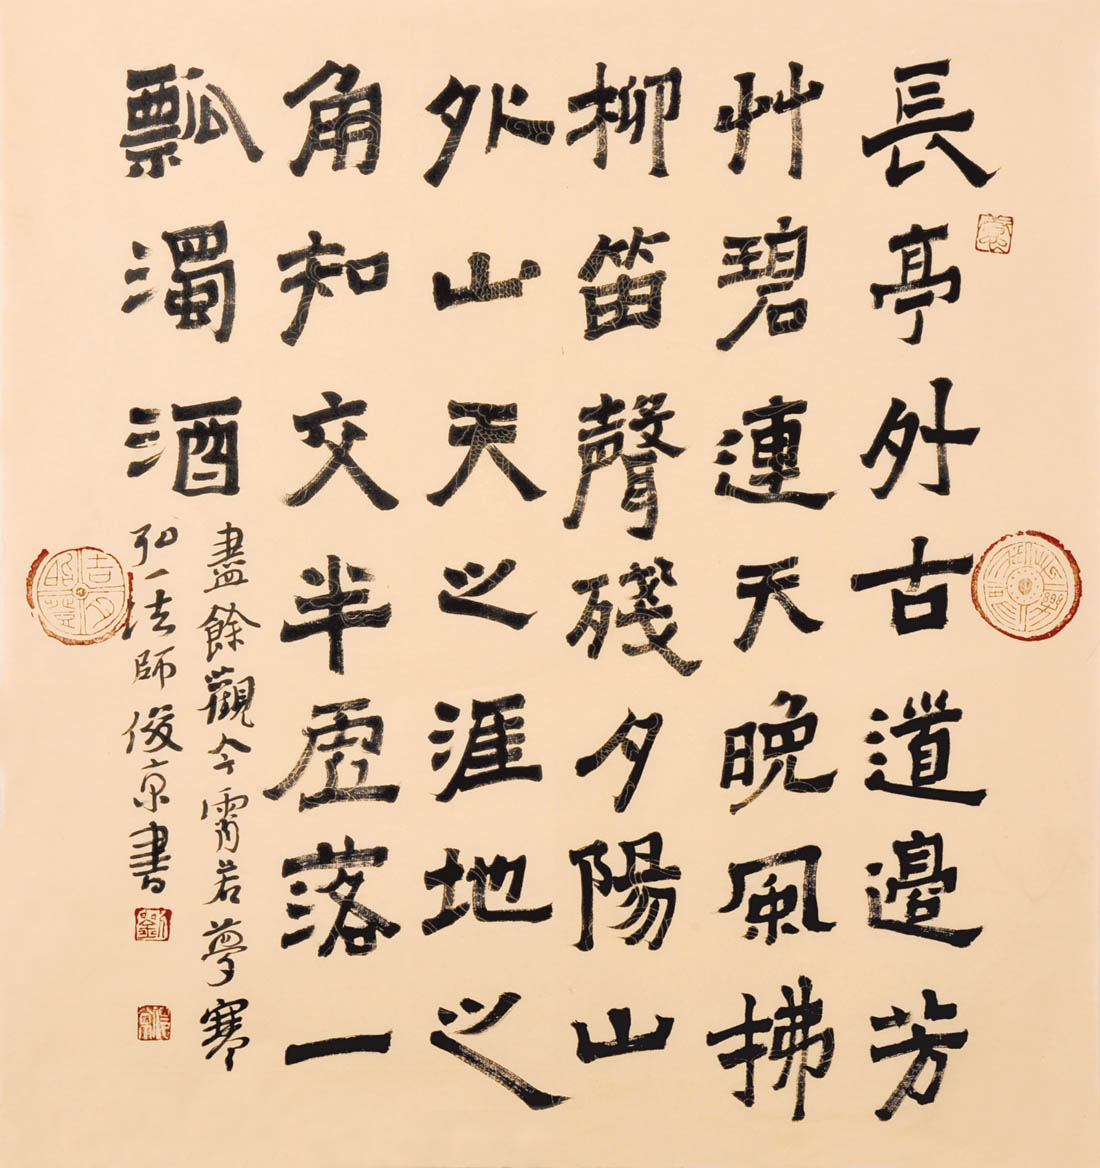 長亭外古道邊芳
艸碧連天晚風拂
柳笛聲殘夕陽山
外山天之涯地之
角知交半虛落一
瓢濁酒
盡餘觀今宵若夢寒
弘一法師俊京書